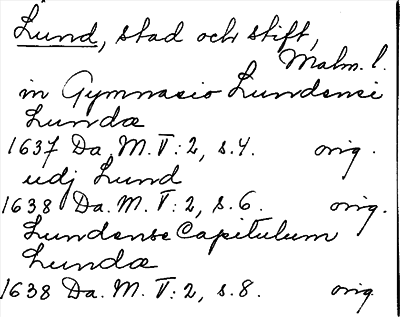 Lund, stad och stift,
Malm. l.
in Gymnasio Lundensi
Lundæ
1637 Da. M. V: 2, s. 4. orig.
udj Lund
1638 Da. M. V: 2, s. 6. orig.
Lundense Capitulum
Lundæ
1638 Da. M. V: 2, s. 8. orig.